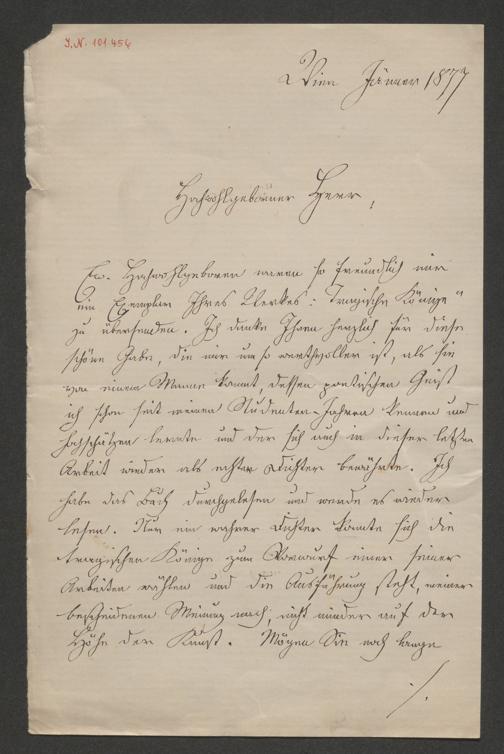 J. N. 101.456
Wien Jänner 1877
Hochwohlgeborner Herr,
Ew. Hochwohlgeboren waren so freundlich mir
ein Exemplar Ihres Werkes: Tragische Könige"
zu übersenden. Ich danke Ihnen herzlich für diese
schöne Gabe, die mir um so werthvoller ist, als sie
von einem Manne kommt, dessen poetischen Geist
ich schon seit meinen Studenten-Jahren kennen und
hochschätzen lernte und der sich auch in dieser letzten
Arbeit wieder als echter Dichter bewährte. Ich
habe das Buch durchgelesen und werde es wieder
lesen. Nur ein wahrer Dichter konnte sich die
tragischen Könige zum Vorwurf einer seiner
Arbeiten wählen und die Ausführung steht, meiner
bescheidenen Meinung nach, nicht minder auf der
Höhe der Kunst. Mögen Sie noch lange
./.